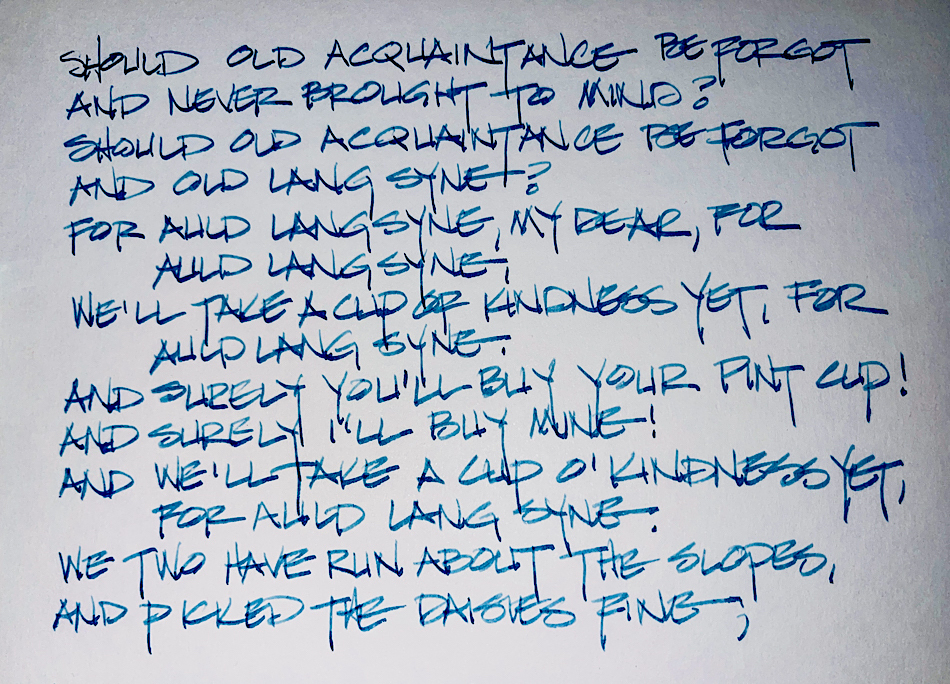 SHOULD OLD ACQUAINTANCE BE FORGOT
AND NEVER BROUGHT TO MIND?
SHOULD OLD ACQUAINTANCE BE FORGOT
AND OLD LANG SYNE?
FOR AULD LANG SYNE, MY DEAR, FOR
AULD LANG SYNE,
WE'LL TAKE A CUP OF KINDNESS YET, FOR
AULD LANG SYNE.
AND SURELY YOU'LL BUY YOUR PINT CUP!
AND SURELY I'LL BUY MINE!
AND WE'LL TAKE A CUP O' KINDNESS YET,
FOR AULD LANG SYNE.
WE TWO HAVE RUN ABOUT THE SLOPES,
AND PICKED THE DAISIES FINE;